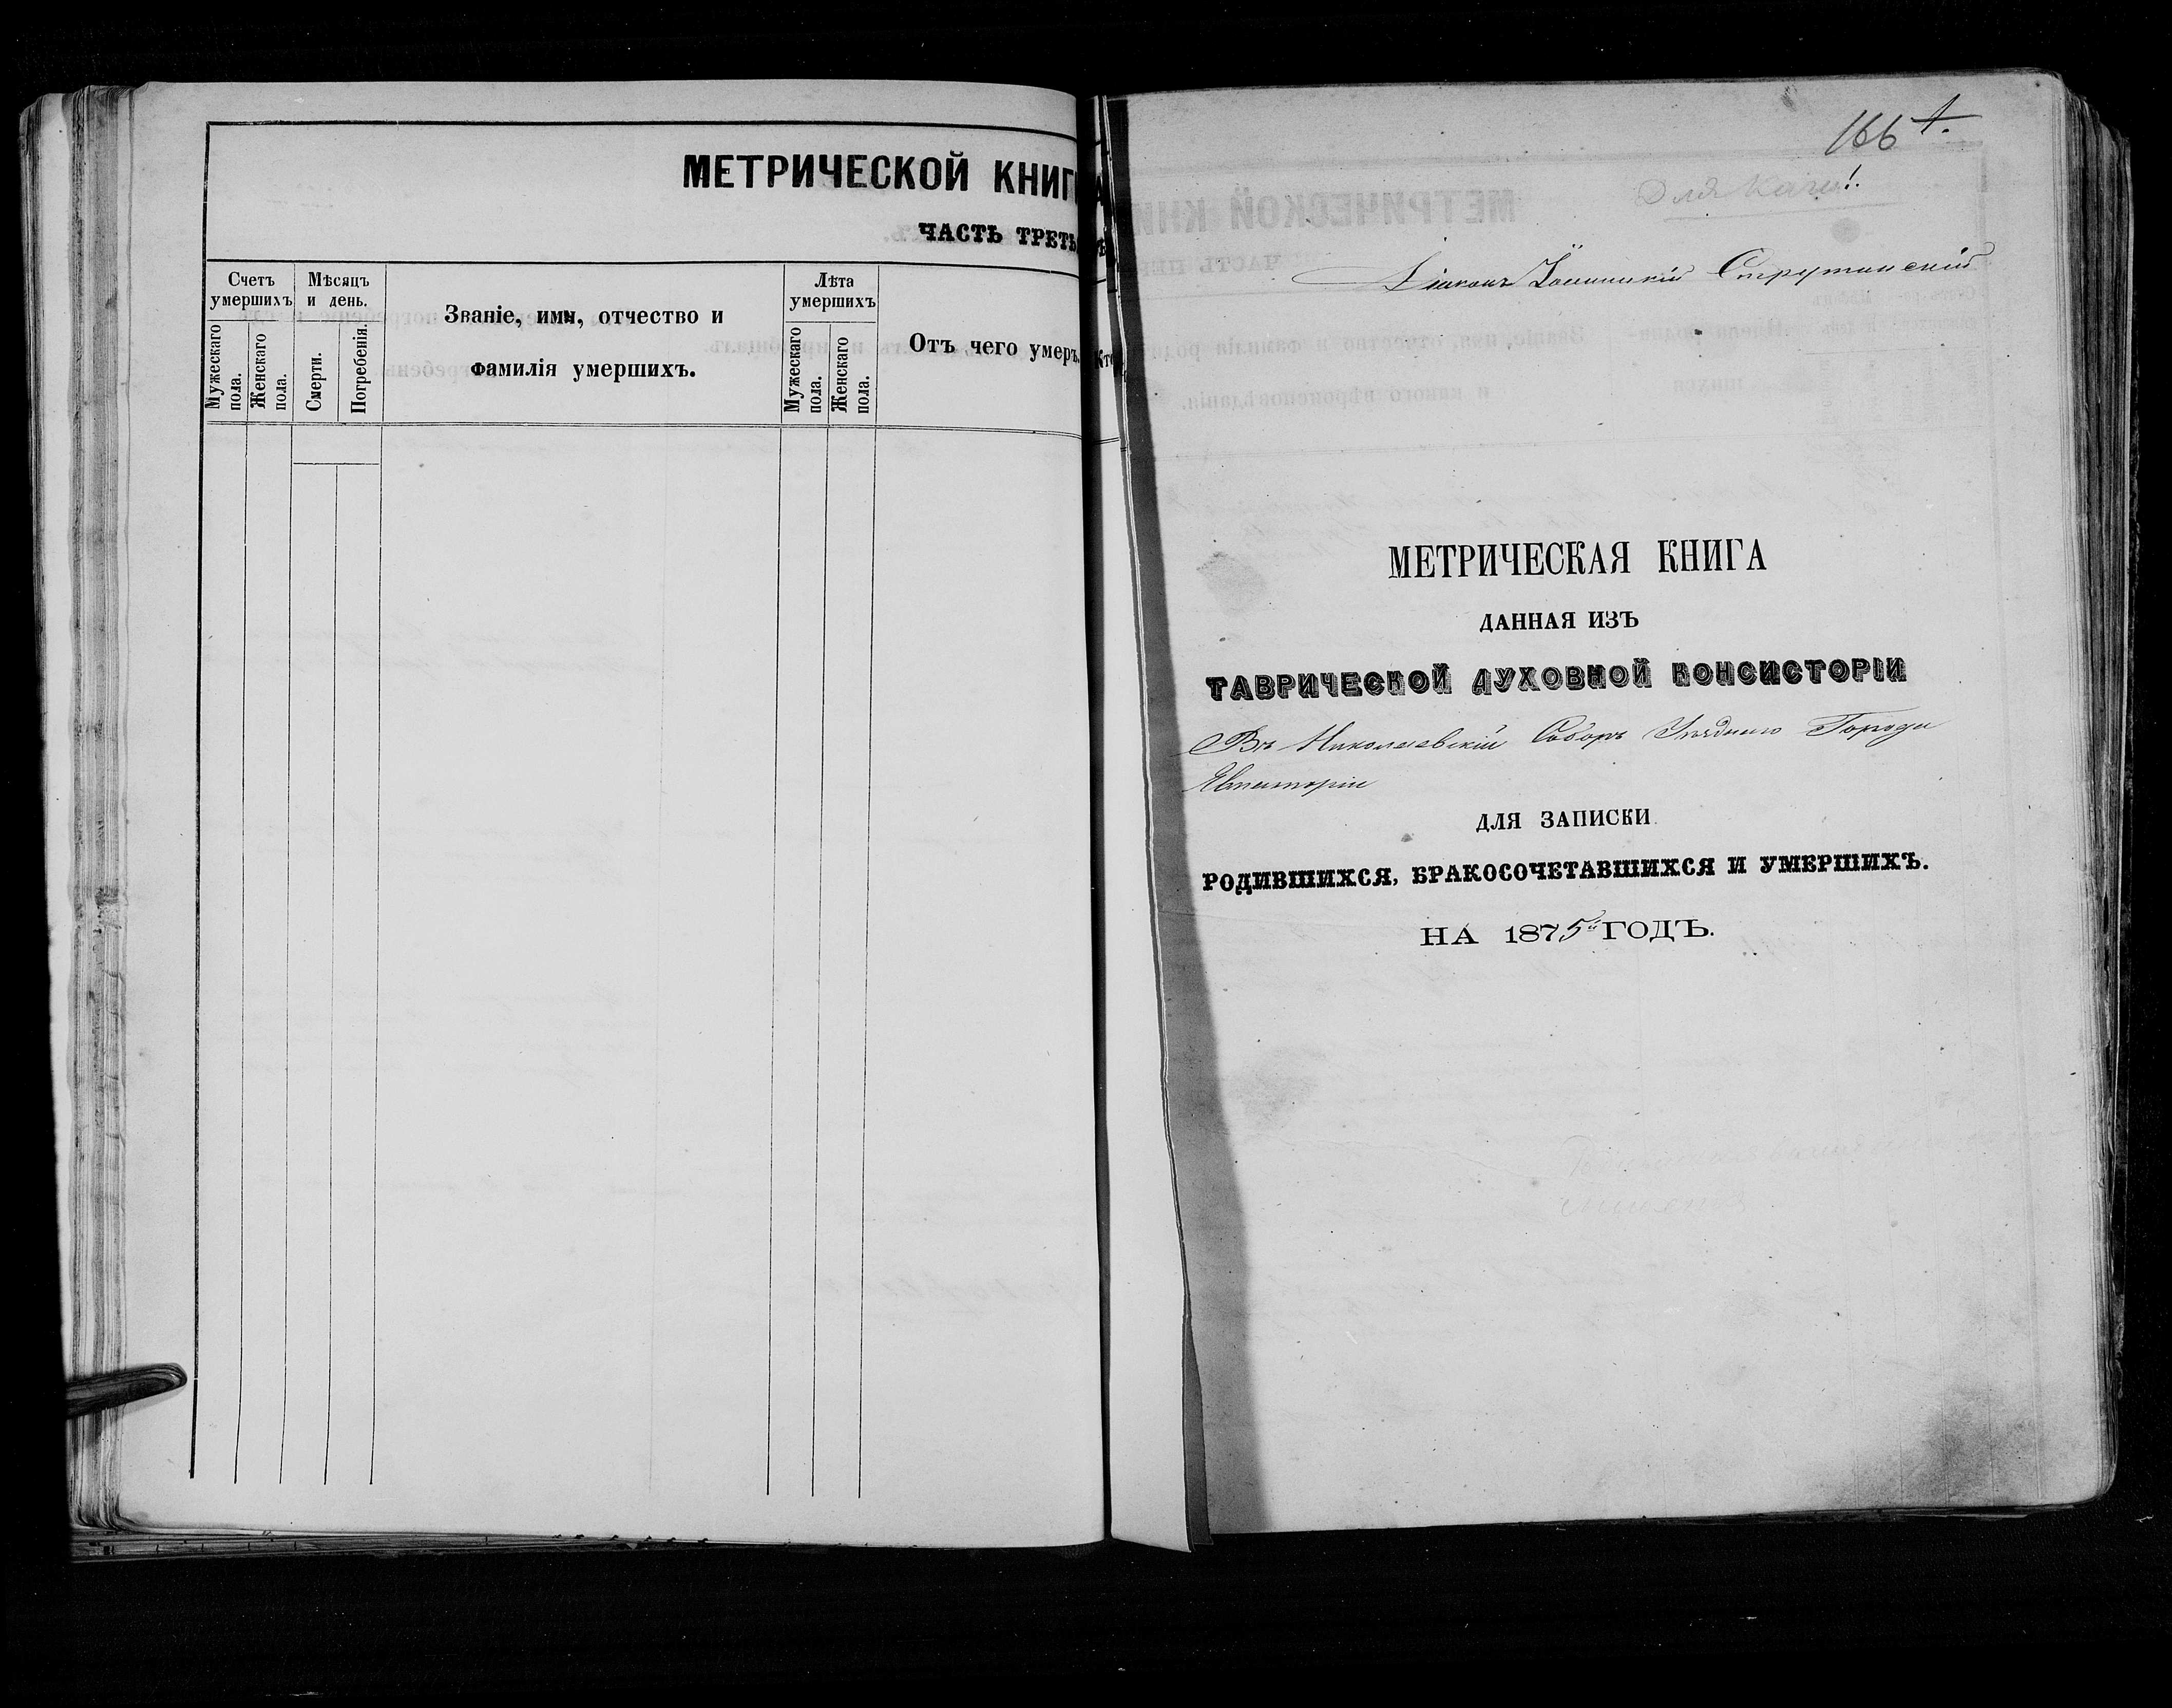 МЕТРИЧЕСКОЙ КНИГ
ЧАСТЬ ТРЕТЬ
Счетъ умершихъ
Мужескаго пола.
Женскаго пола.
Мѣсяцъ и день.
Смерти.
Погребенія.
Званіе, имя, отчество и
фамилія умершихъ.
Лѣта умершихъ
Мужескаго пола.
Женскаго пола.
Отъ чего умеръ.
Кто
166 1.
Для
Діаконъ Струтинскій
МЕТРИЧЕСКАЯ КНИГА
ДАННАЯ ИЗЪ
ТАВРИЧЕСКОЙ ДУХОВНОЙ КОНСИСТОРІИ
Въ Николаевскій Соборъ Уѣзднаго Города
Евпаторіи
ДЛЯ ЗАПИСКИ
РОДИВШИХСЯ, БРАКОСОЧЕТАВШИХСЯ И УМЕРШИХЪ.
НА 1875й ГОДЪ.